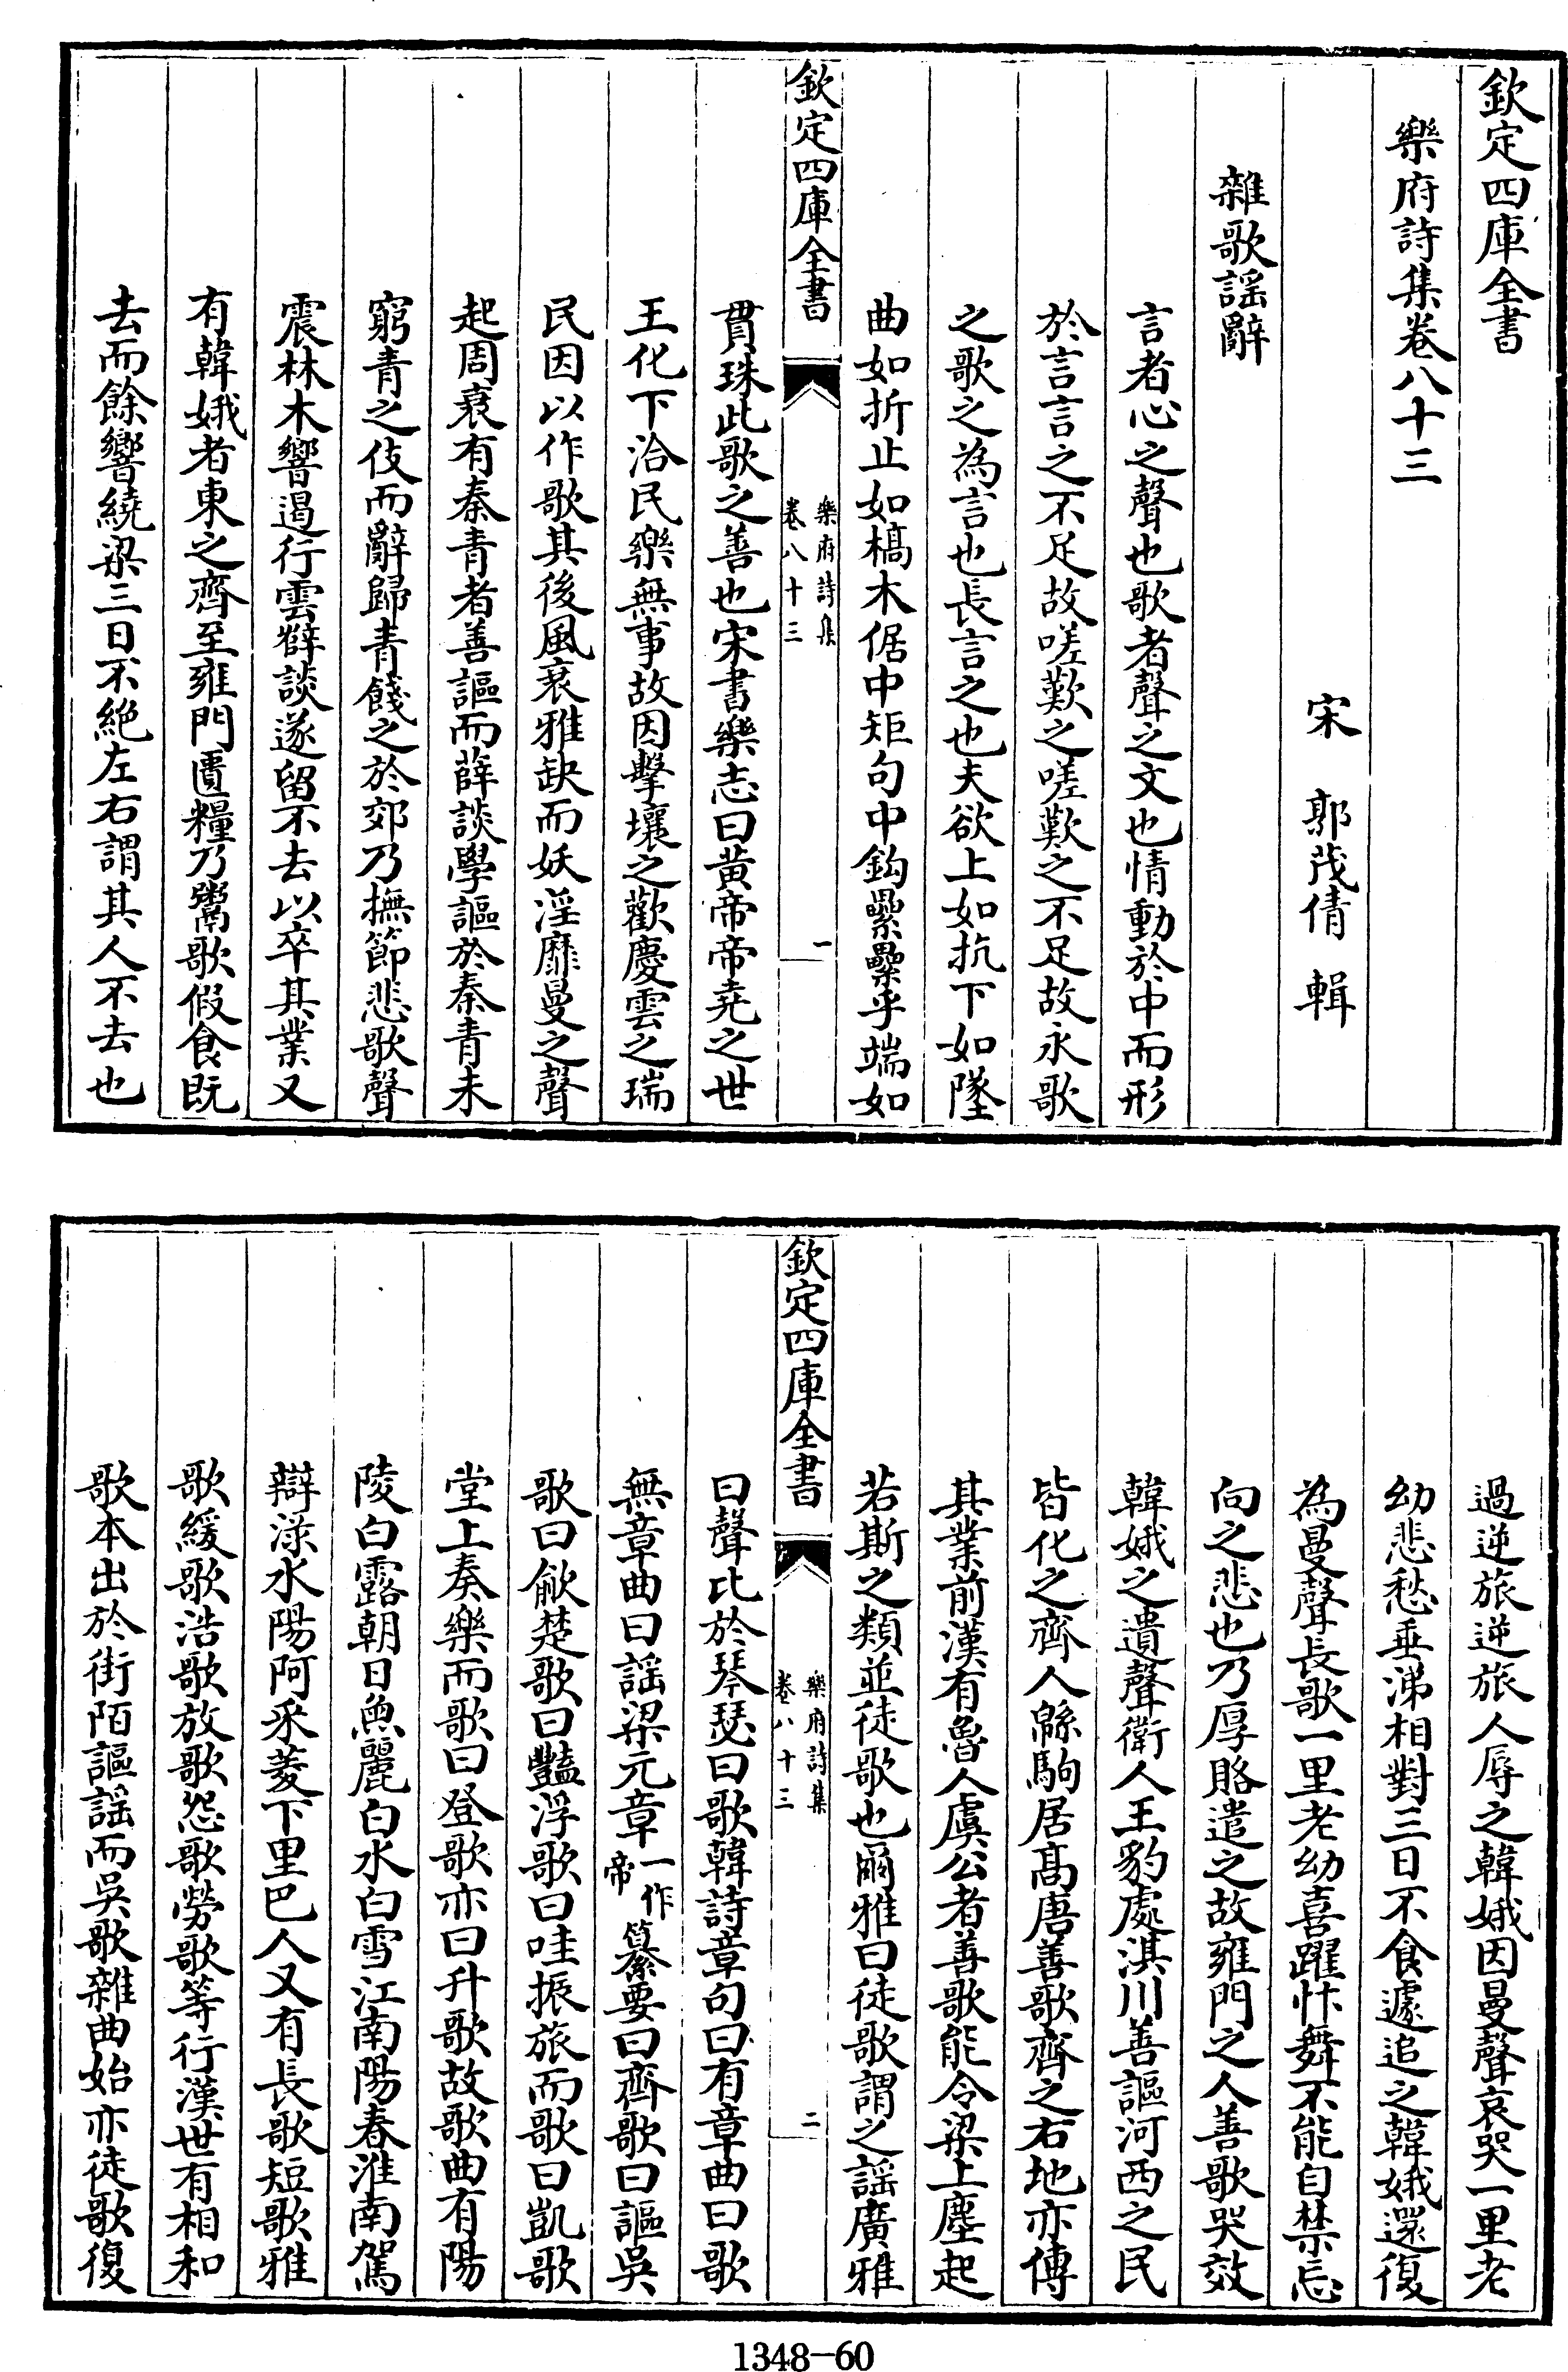 欽定四庫全書
樂府詩集卷八十三
宋　郭茂倩　輯
雜歌謡辭
言者心之聲也歌者聲之文也情動於中而形
於言言之不足故嗟歎之嗟歎之不足故永歌
之歌之為言也長言之也夫欲上如抗下如墜
曲如折止如槁木倨中矩句中鈎纍纍乎端如
欽定四庫全書
樂府詩集
卷八十三
一
貫珠此歌之善也宋書樂志曰黄帝帝堯之世
王化下洽民樂無事故因擊壤之歡慶雲之瑞
民因以作歌其後風衰雅缺而妖淫靡曼之聲
起周衰有秦青者善謳而薛談學謳於秦青未
窮青之伎而辭歸青餞之於郊乃撫節悲歌聲
震林木響遏行雲薛談遂留不去以卒其業又
有韓娥者東之齊至雍門匱糧乃鬻歌假食既
去而餘響繞梁三日不絶左右謂其人不去也
過逆旅逆旅人辱之韓娥因曼聲哀哭一里老
幼悲愁垂涕相對三日不食遽追之韓娥還復
為曼聲長歌一里老幼喜躍忭舞不能自禁忘
向之悲也乃厚賂遣之故雍門之人善歌哭效
韓娥之遺聲衛人王豹處淇川善謳河西之民
皆化之齊人緜駒居髙唐善歌齊之右地亦傳
其業前漢有魯人虞公者善歌能令梁上塵起
若斯之類並徒歌也爾雅曰徒歌謂之謡廣雅
欽定四庫全書
樂府詩集
卷八十三
二
曰聲比於琴瑟曰歌韓詩章句曰有章曲曰歌
無章曲曰謡梁元章一作帝纂要曰齊歌曰謳吳
歌曰歈楚歌曰豔浮歌曰哇振旅而歌曰凱歌
堂上奏樂而歌曰登歌亦曰升歌故歌曲有陽
陵白露朝日魚麗白水白雪江南陽春淮南駕
辯渌水陽阿采菱下里巴人又有長歌短歌雅
歌緩歌浩歌放歌怨歌勞歌等行漢世有相和
歌本出於街陌謳謡而吳歌雜曲始亦徒歌復
1348-60